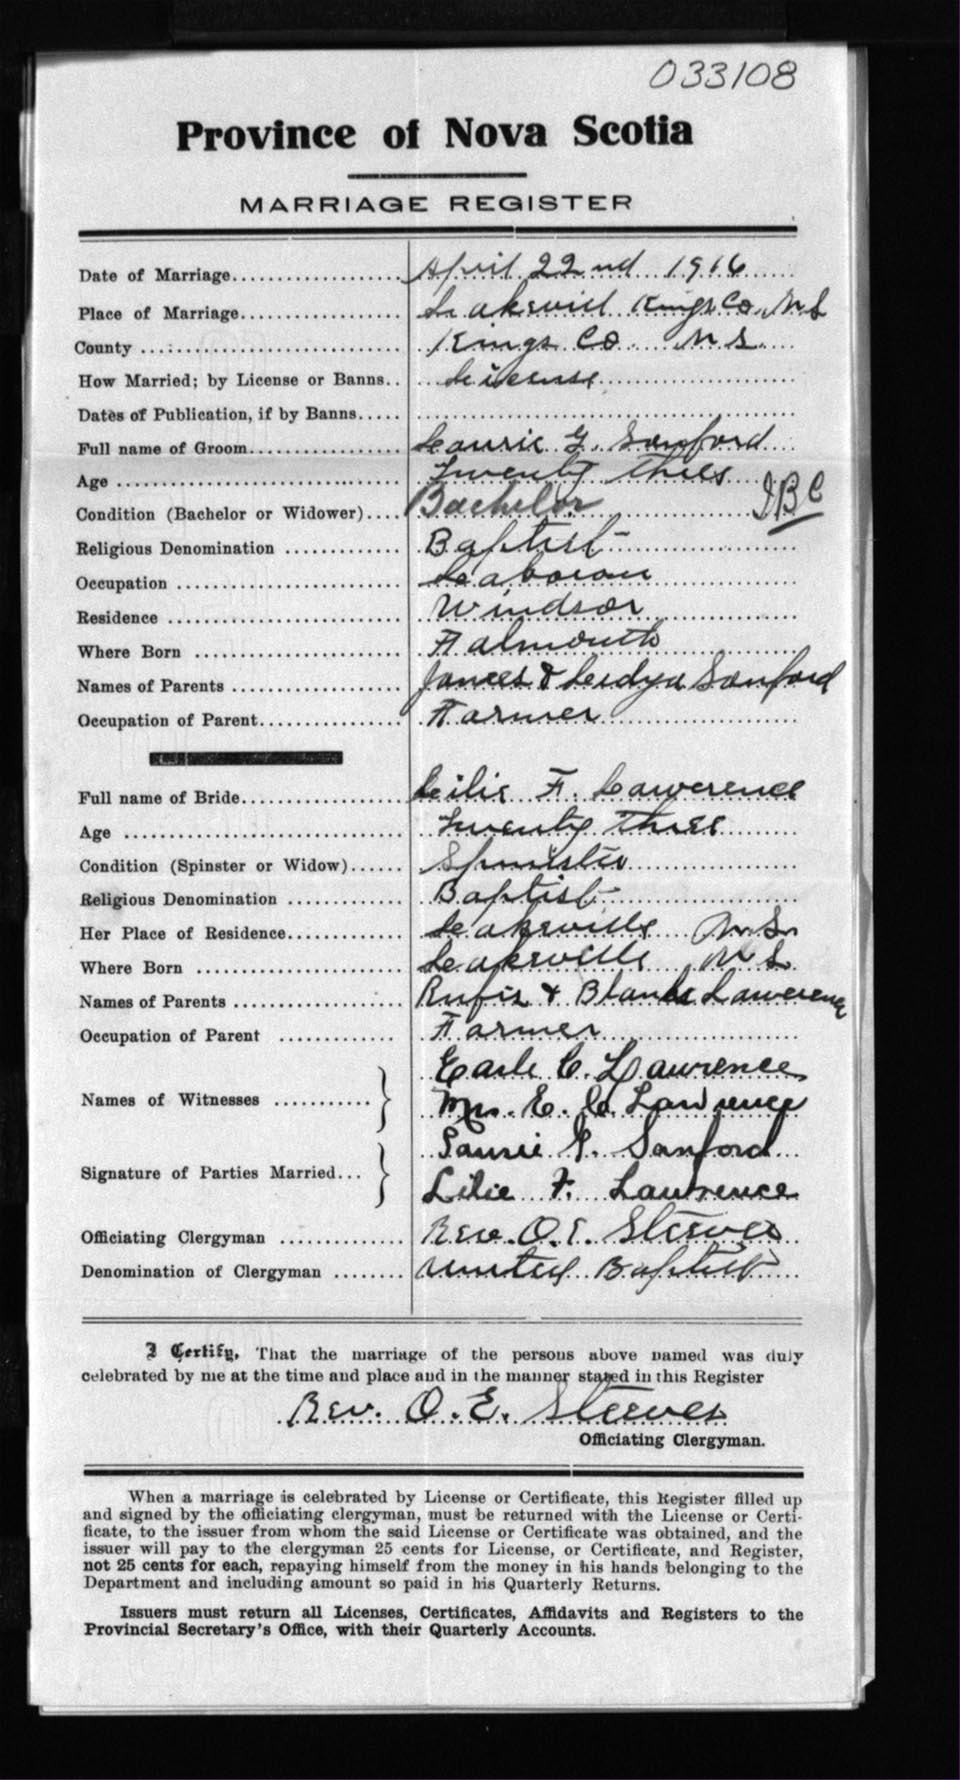 033108
Province of Nova Scotia
MARRIAGE REGISTER
Date of Marriage April 22nd 1916
Place of Marriage Lakevill Kings Co. N S
County Kings Co N S
How Married; by License or Banns License
Dates of Publication, if by Banns
Full name of Groom Laurie G. Sanford
Age Twenty three
Condition (Bachelor or Widower) Bachelor
Religious Denomination Baptist
Occupation
Residence Windsor
Where Born Falmouth
Names of Parents James & Leidya Sanford
Occupation of Parent Farmer
Full name of Bride Lilie F. Lawerence
Age Twenty three
Condition (Spinster or Widow) Spinster
Religious Denomination Baptist
Her Place of Residence Lakeville N S
Where Born Lakeville N S
Names of Parents Rufis & Lawerence
Occupation of Parent Farmer
Earle C. Lawrence
Names of Witnesses
Mrs. E. C. Lawrence
Laurie G. Sanford
Signature of Parties Married
Lilie F. Lawrence
Officiating Clergyman Rev. O. E. Steeves
Denomination of Clergyman United Baptist
I Certify, That the marriage of the persons above named was duly
celebrated by me at the time and place and in the manner stated in this Register
Rev. O. E. Steeves
Officiating Clergyman.
When a marriage is celebrated by License or Certificate, this Register filled up
and signed by the officiating clergyman, must be returned with the License or Certi-
ficate, to the issuer from whom the said License or Certificate was obtained, and the
issuer will pay to the clergyman 25 cents for License, or Certificate, and Register,
not 25 cents for each, repaying himself from the money in his hands belonging to the
Department and including amount so paid in his Quarterly Returns.
Issuers must return all Licenses, Certificates, Affidavits and Registers to the
Provincial Secretary's Office, with their Quarterly Accounts.